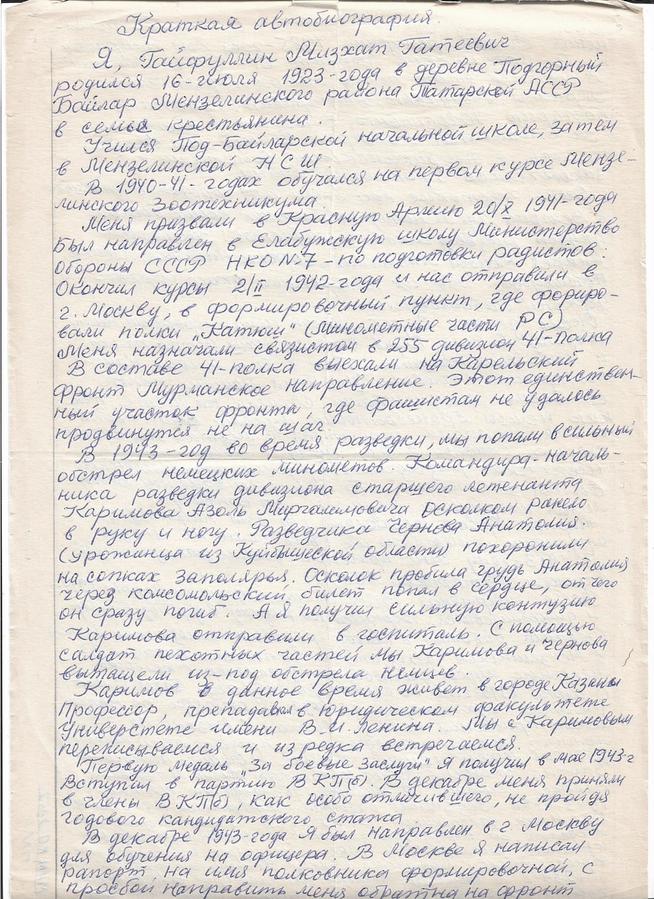 Краткая автобиография.
Я, Гайфуллин Мизхат Гатеевич
родился 16-июля 1923-года в деревне Подгорный
Байлар Мензелинского района Татарской АССР
в семье крестьянина.
Учился Под-Байларской начальной школе, затем
в Мензелинской НСШ.
В 1940-41-годах обучался на первом курсе Мензе-
линского Зоотехникума.
Меня призвали в Красную Армию 20/X 1941-года
Был направлен в Елабужскую школу Министерство
Обороны СССР НКО №7-по подготовки радистов:
Окончил курсы 2/II 1942-года и нас отправили в
г. Москву, в формировочный пункт, где формиро-
вали полки „Катюш" (Минометные части РС)
Меня назначали связистом в 255 дивизион 41-полка
В составе 41-полка выехали на Карельский
фронт Мурманское направление. Этот единствен-
ный участок фронта, где фашистам не удалось
продвинутся не на шаг.
В 1943-год во время разведки, мы попали в сильный
обстрел немецких минометов. Командира-началь-
ника разведки дивизиона старшего летенанта
Каримова Азоль осколком ранело
в руку и ногу. Разведчика Чернова Анатолия.
(урожанца из Куйбышеской области) похоронили
на сопках Заполярья. Осколок пробила грудь Анатолия
через комсомольский билет попал в сердце, от чего
он сразу погиб. А я получил сильную контузию
Каримова отправили в госпиталь. С помощью
солдат пехотных частей мы Каримова и Чернова
вытащели из-под обстрела немцев.
Каримов в данное время живет в городе Казани
Профессор, преподавал в Юридическом факультете
Универстете имени В.И.Ленина. Мы с Каримовым
переписываемся и изредка встречаемся.
Первую медаль „За боевые заслуги" Я получил в мае 1943-г
Вступил в партию ВКП(б). В декабре меня приняли
в члены ВКП(б), как особо отличившего, не пройдя
годового кандидатского стажа.
В декабре 1943-года Я был направлен в г Москву
для обучения на офицера. В Москве я написал
рапорт, на имя полковника формировочной, с
просьбой направить меня обратна на фронт